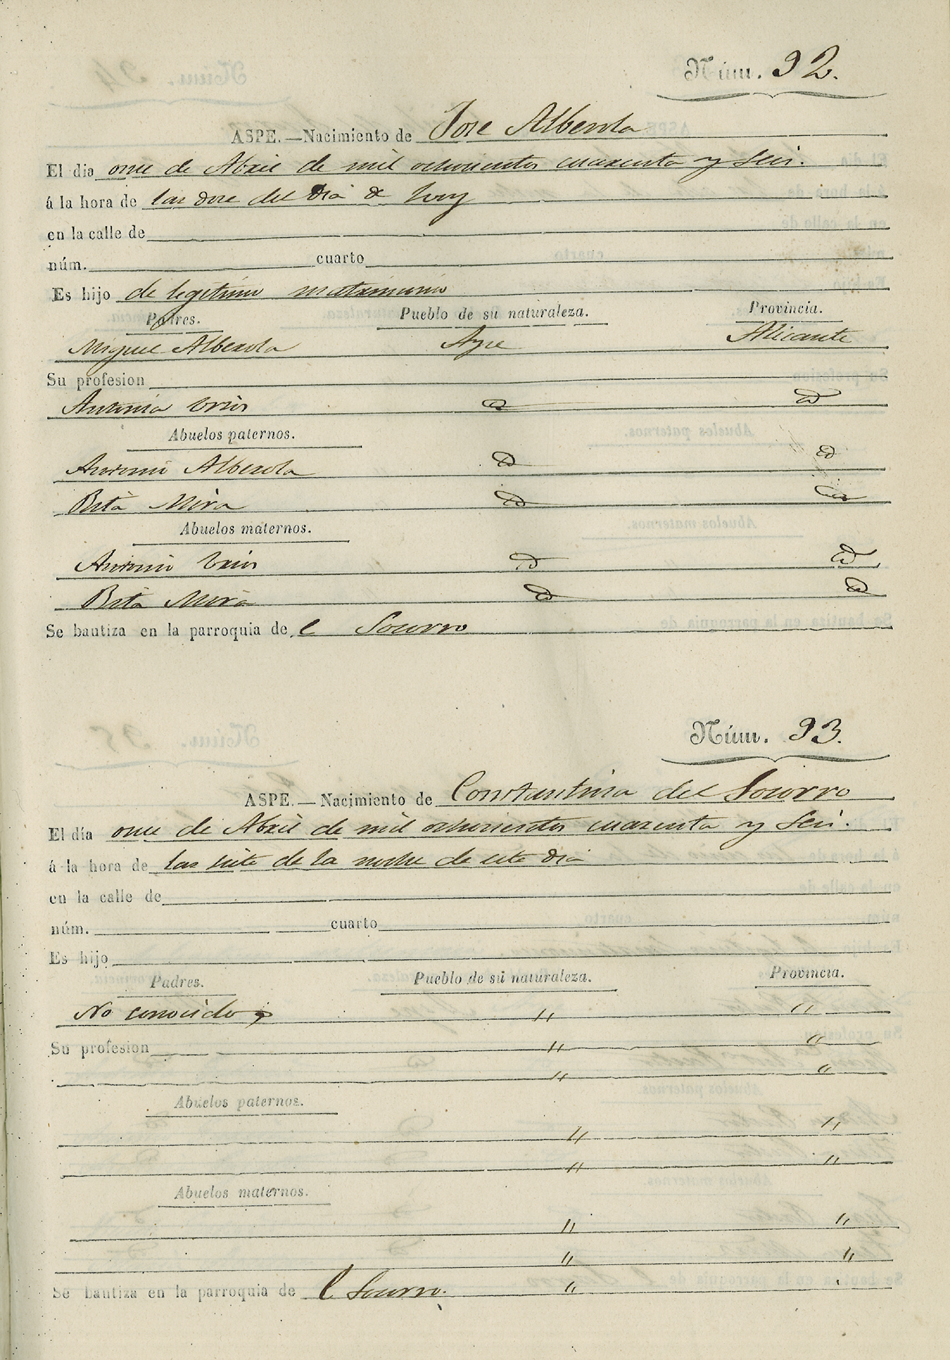 Núm. 92.
ASPE.—Nacimiento de Jose Alberola
El dia once de Abril de mil ochocientos cuarenta y seis.
á la hora de las doce del dia de hoy
en la calle de
núm. cuarto
Es hijo de legitimo matrimonio
Padres. Pueblo de su naturaleza. Provincia.
Miguel Alberola Aspe Alicante
Su profesion
Antonia id id
Abuelos paternos.
Antonio Alberola id id
Rita Mira id id
Abuelos maternos.
Antonio id id
Rita Mira id id
Se bautiza en la parroquia del Socorro
Núm. 93.
ASPE.—Nacimiento de Constantina del Socorro
El día once de Abril de mil ochocientos cuarenta y seis.
á la hora de las siete de la noche de este dia
en la calle de
núm. cuarto
Es hijo
Padres. Pueblo de su naturaleza. Provincia.
No conocidos " "
Su profesion " "
" "
Abuelos paternos.
" "
" "
Abuelos maternos.
" "
" "
Se bautiza en la parroquia de l Socorro. "